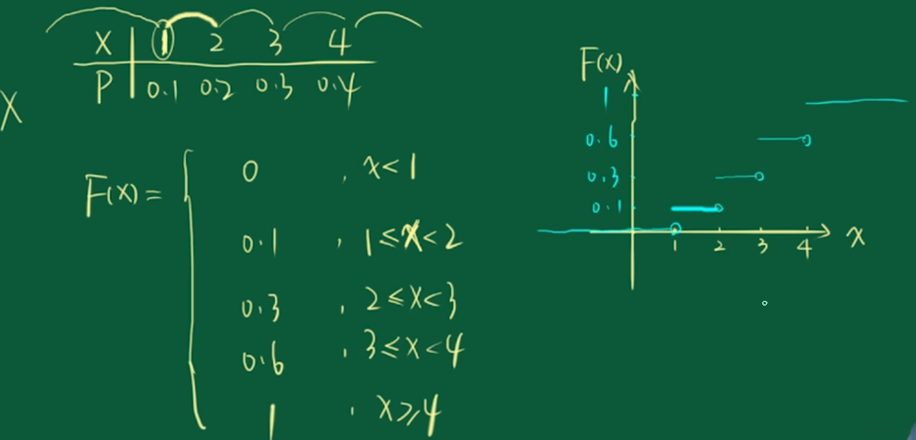 X | 1 2 3 4
P | 0.1 0.2 0.3 0.4
X
F(x) = { 0 , x < 1
0.1 , 1 ≤ x < 2
0.3 , 2 ≤ x < 3
0.6 , 3 ≤ x < 4
1 , x ≥ 4
F(x)
1
0.6
0.3
0.1
1 2 3 4 x